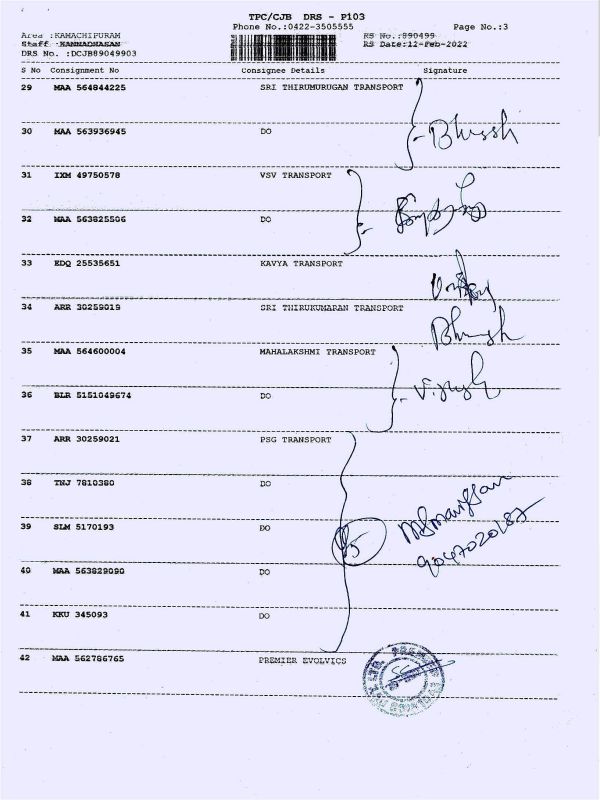 TPC/CJB DRS - P103
Phone No.:0422-3505555 Page No.:3
Area :KAMACHIPURAM RS No.:890499
Staff :KANNADHASAN RS Date:12-Feb-2022
DRS No. :DCJB89049903
S No Consignment No Consignee Details Signature
29 MAA 564844225 SRI THIRUMURUGAN TRANSPORT
30 MAA 563936945 DO
31 IXM 49750578 VSV TRANSPORT
32 MAA 563825506 DO
33 EDQ 25535651 KAVYA TRANSPORT
34 ARR 30259019 SRI THIRUKUMARAN TRANSPORT
35 MAA 564600004 MAHALAKSHMI TRANSPORT
36 BLR 5151049674 DO
37 ARR 30259021 PSG TRANSPORT
38 TNJ 7810380 DO
39 SLM 5170193 DO
9047020187
40 MAA 563829090 DO
41 KKU 345093 DO
42 MAA 562786765 PREMIER EVOLVICS